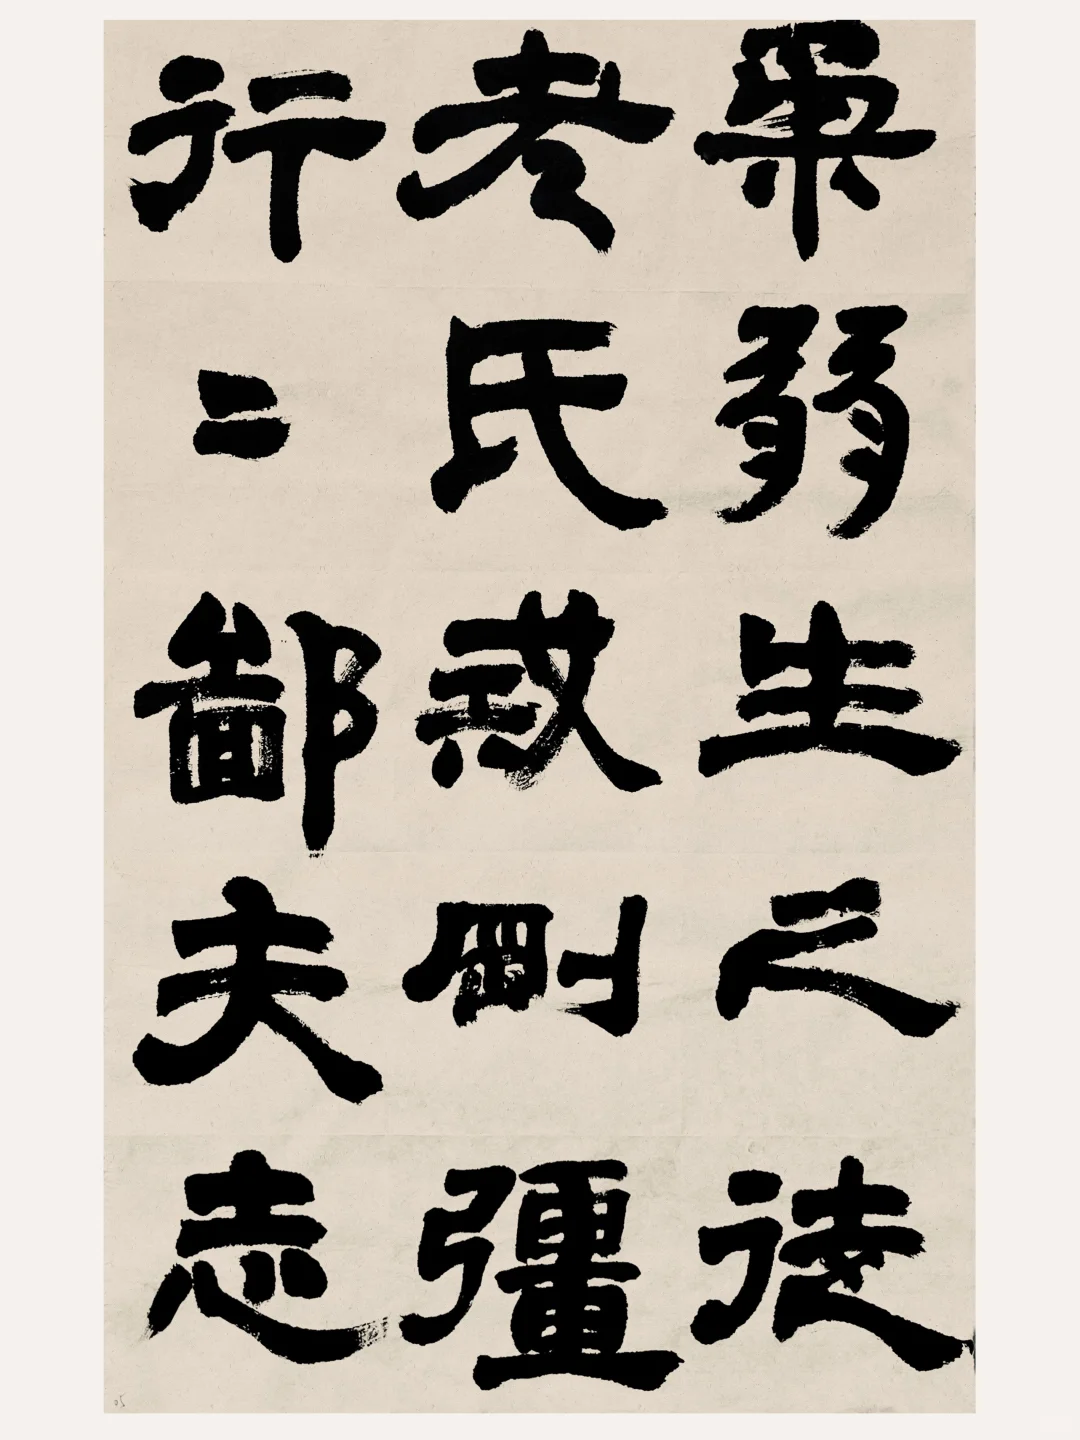 柔弱生之徒
老氏誡剛彊
行〻鄙夫志